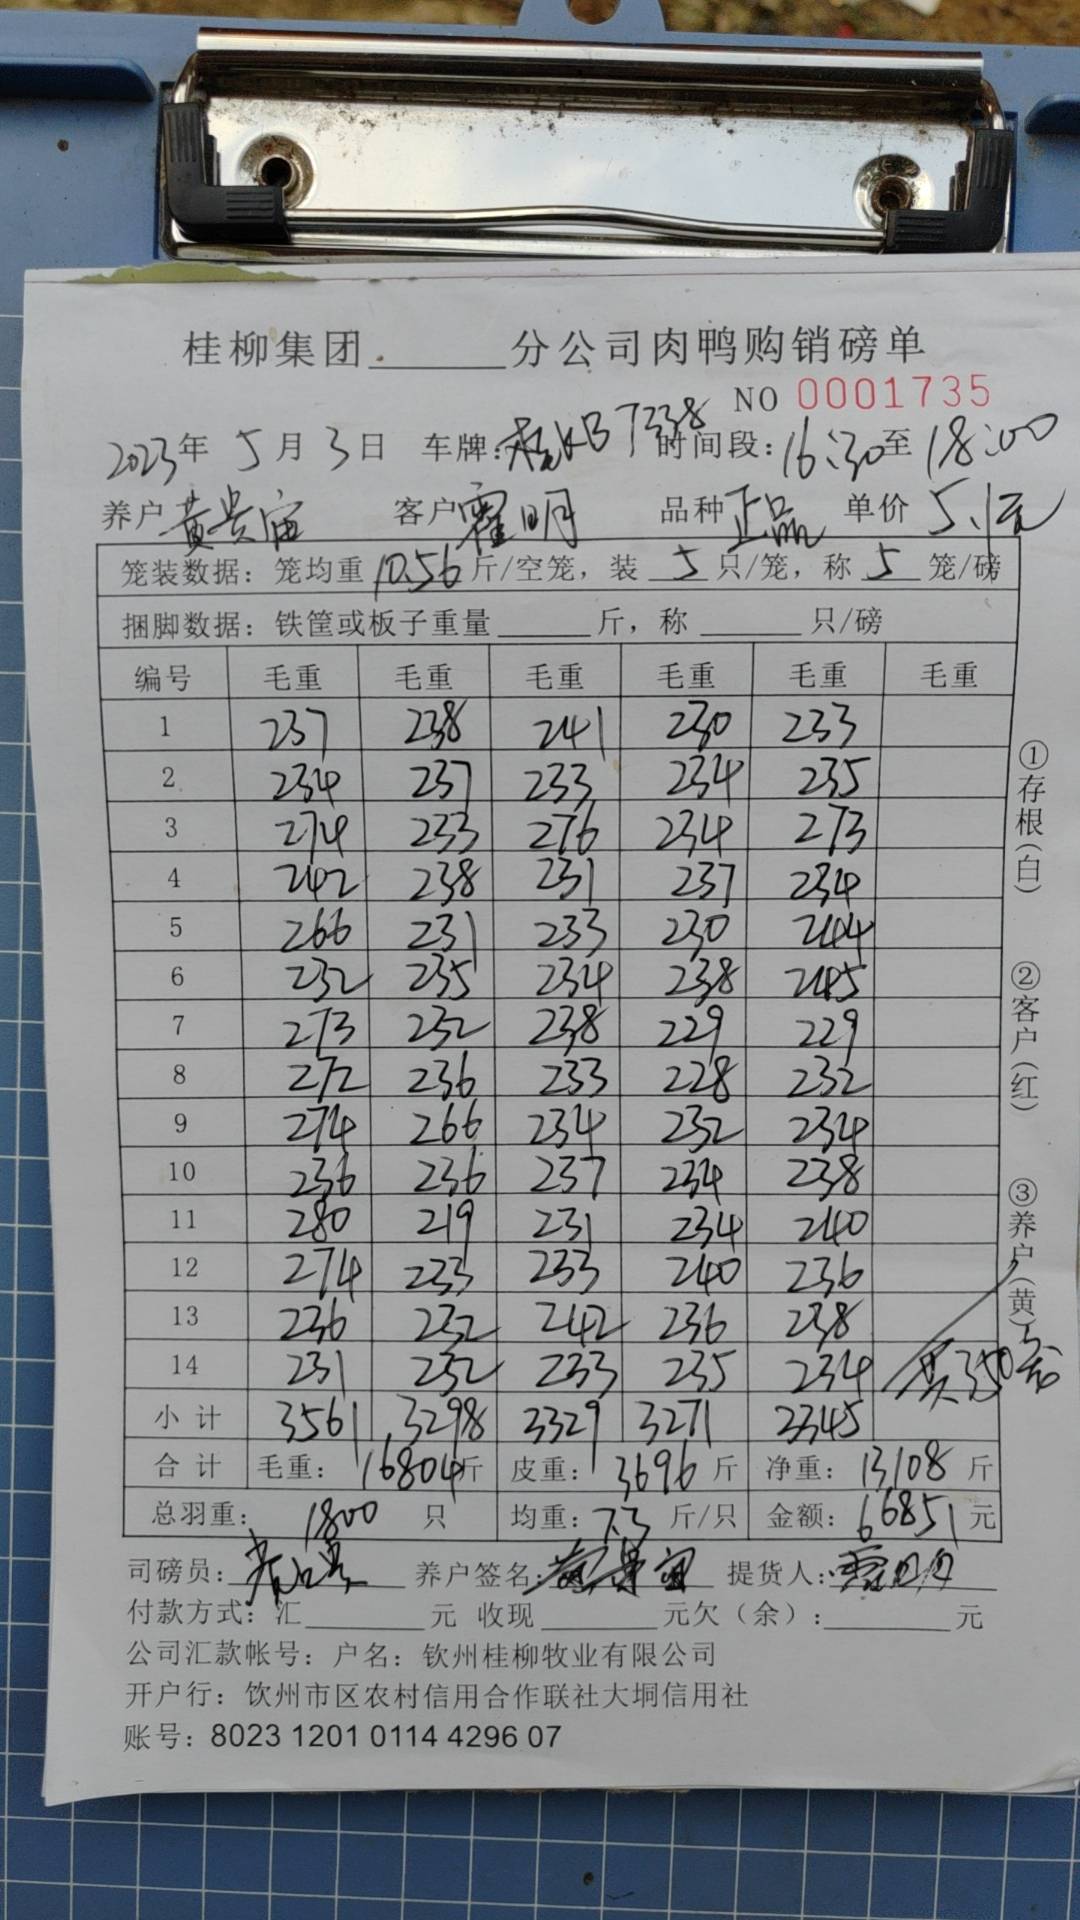 桂柳集团______分公司肉鸭购销磅单
NO 0001735
2023年 5月 3日 车牌:桂KB7338 时间段:16:30至18:00
养户黄贵宙 客户霍明 品种正品 单价5.1元
笼装数据：笼均重10.56斤/空笼，装 5 只/笼，称 5 笼/磅
捆脚数据：铁筐或板子重量______斤，称______只/磅
编号 毛重 毛重 毛重 毛重 毛重 毛重
1 237 238 241 230 233
2 234 237 233 234 235
3 274 233 276 234 273
4 242 238 231 237 234
5 266 231 233 230 244
6 232 235 234 238 245
7 273 232 238 229 229
8 272 236 233 228 232
9 274 266 234 232 234
10 236 236 237 234 238
11 280 219 231 234 240
12 274 233 233 240 236
13 236 232 242 236 238
14 231 232 233 235 234
小计 3561 3298 3329 3271 3345
合计 毛重：16804斤 皮重：3696斤 净重：13108斤
总羽重：1800 只 均重：7.3 斤/只 金额：66851元
司磅员: 养户签名:黄贵宙 提货人:霍明
付款方式：汇______元 收现______元欠（余）:______元
公司汇款帐号：户名：钦州桂柳牧业有限公司
开户行：饮州市区农村信用合作联社大垌信用社
账号：8023 1201 0114 4296 07
①存根(白)
②客户(红)
③养户(黄)
买350